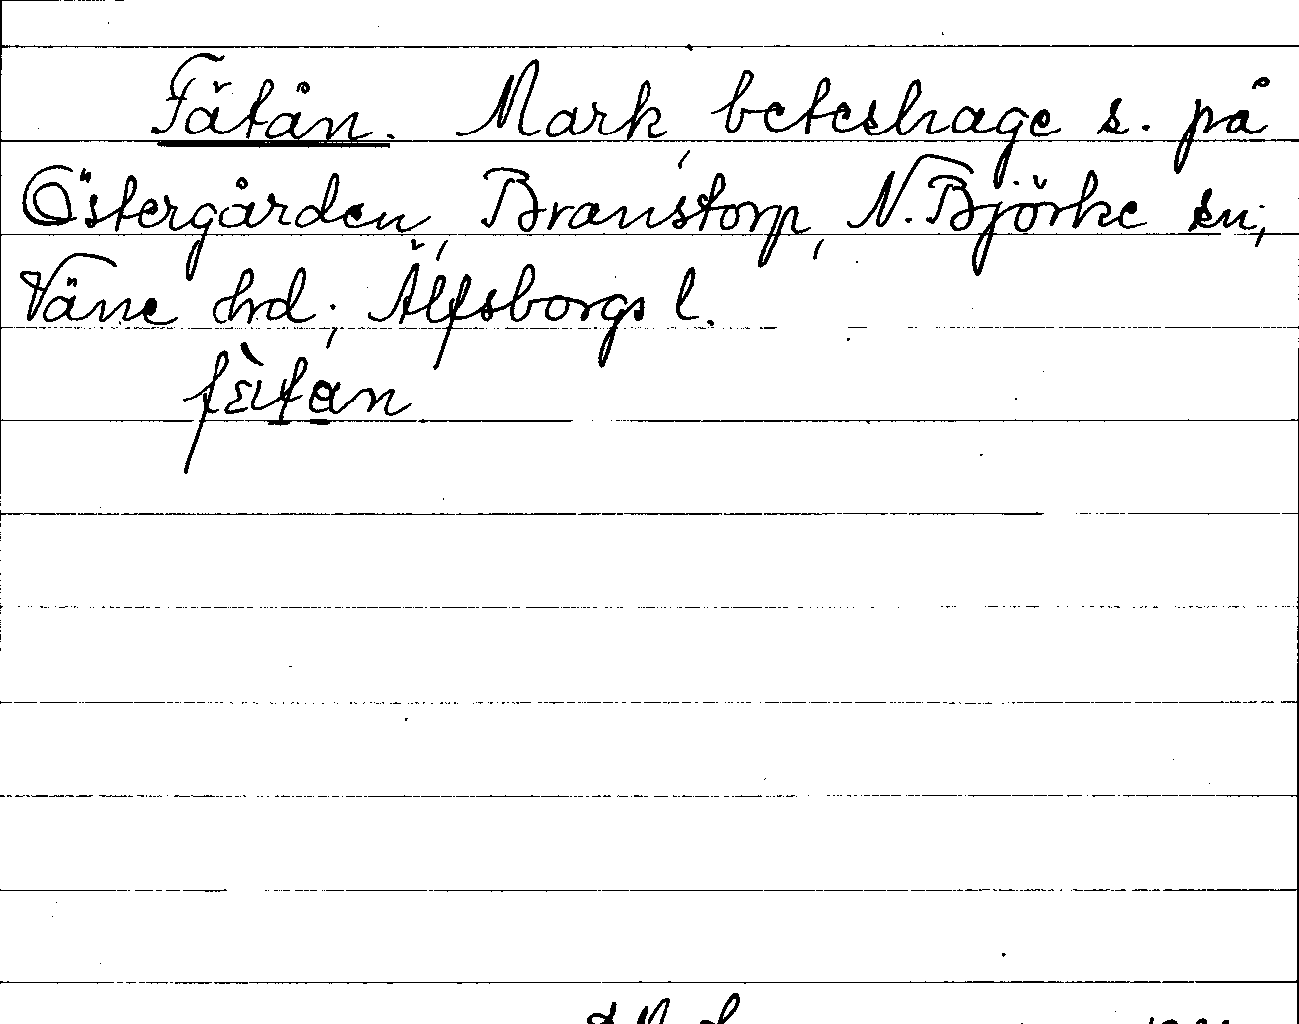 Fätån. Mark, beteshage s. på
Östergården, Branstorp, N. Björke sn,
Väne hd, Älfsborgs l.